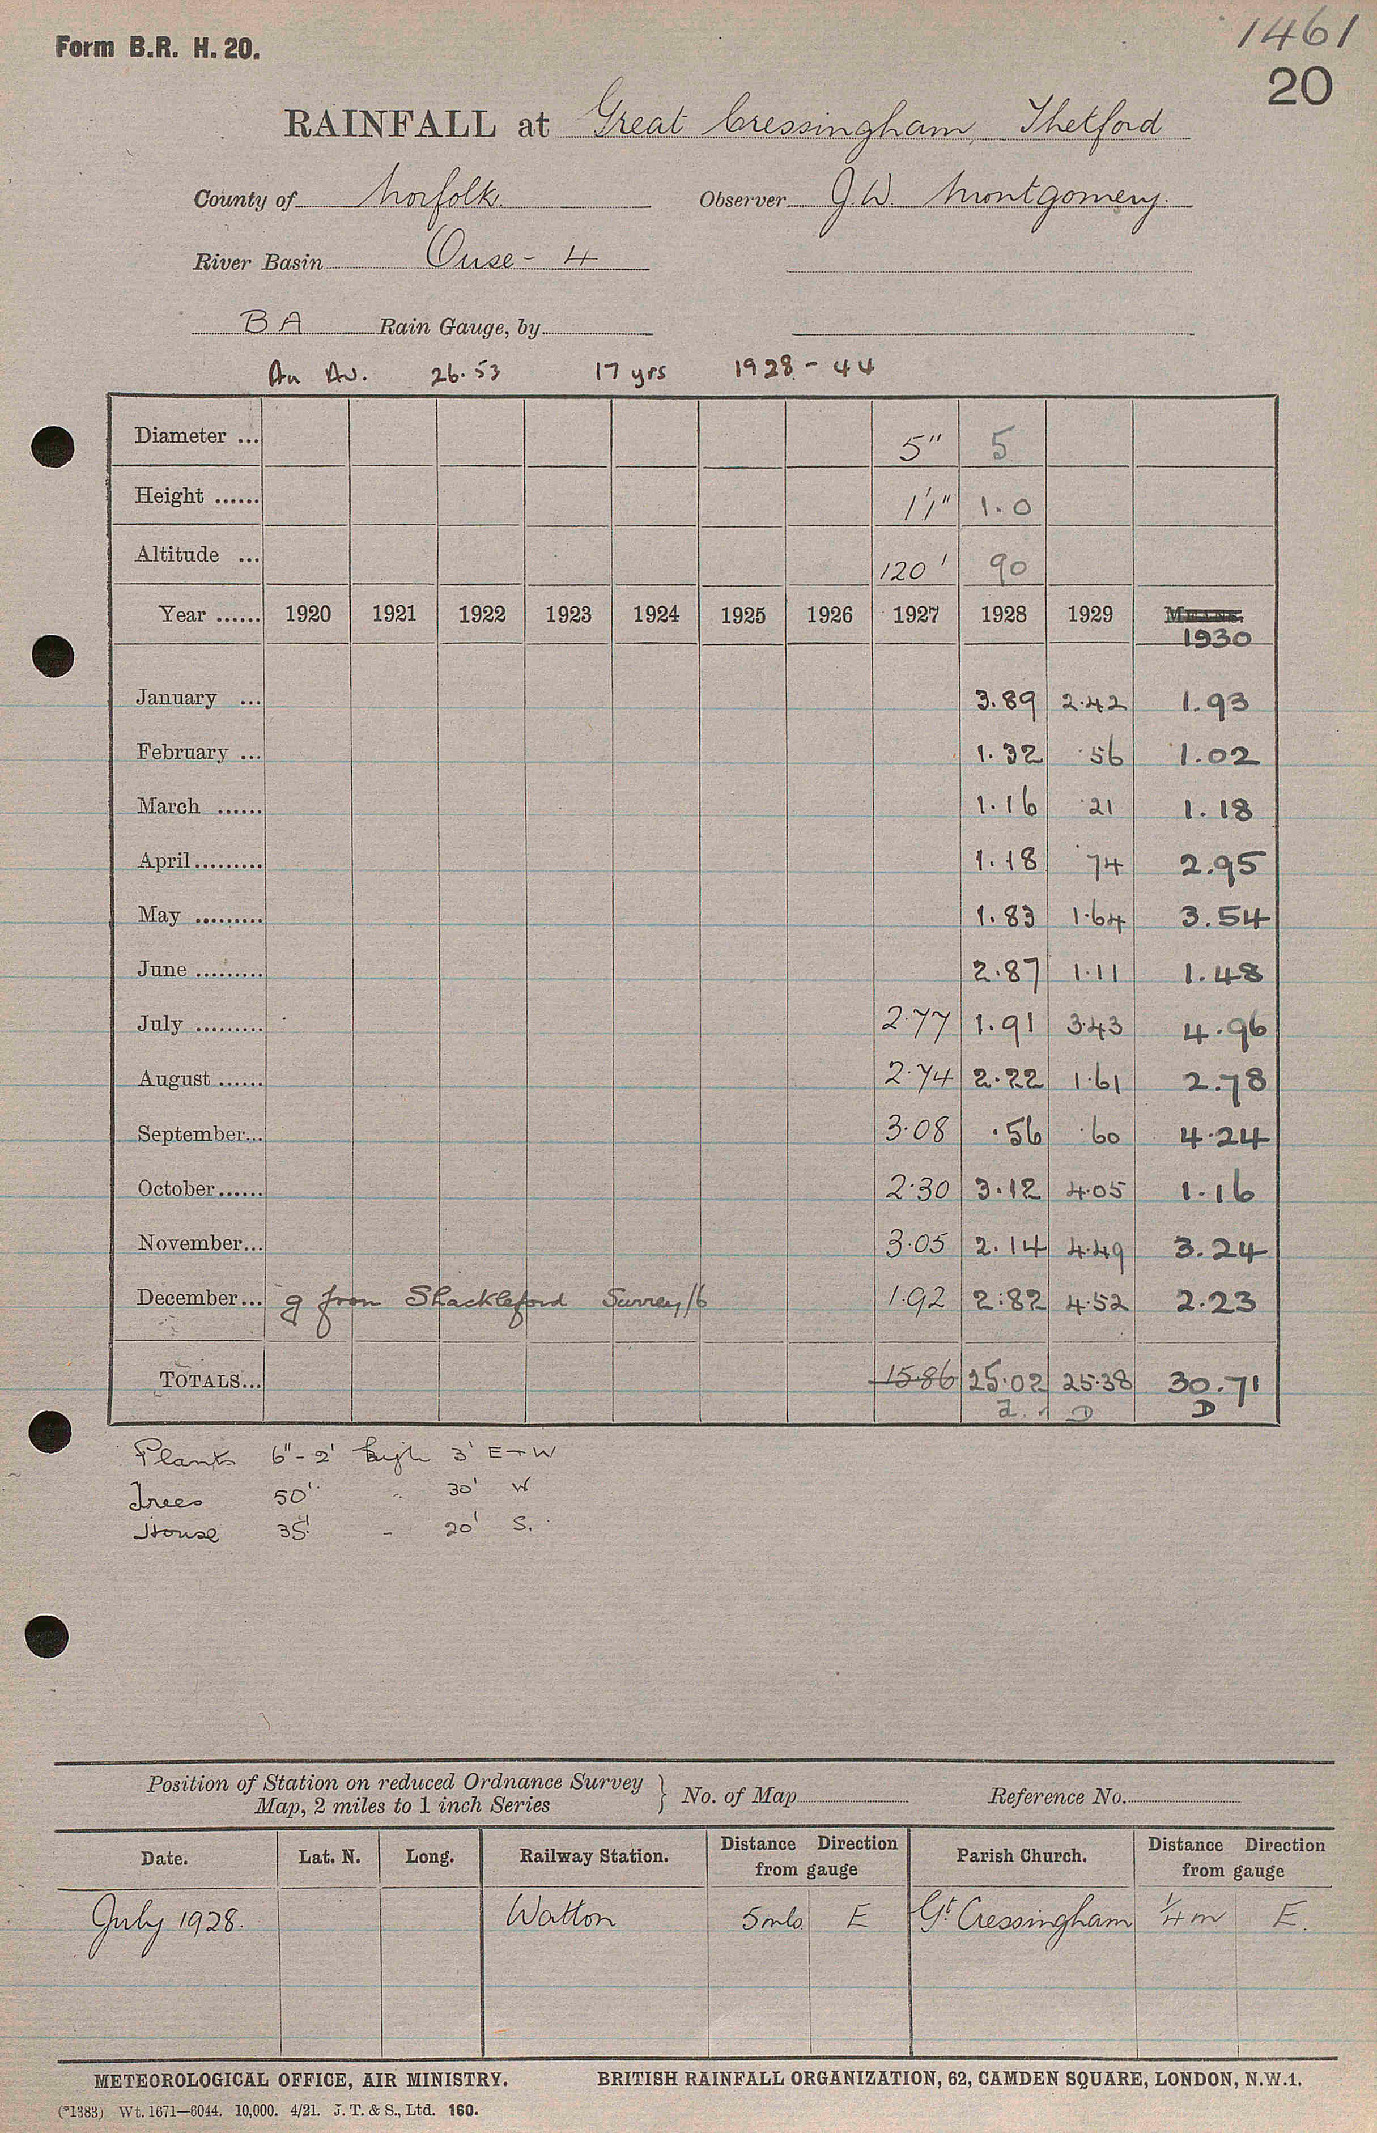 1461
Form B.R. H. 20.
20
RAINFALL at Great Cressingham, Thetford
County of Norfolk. Observer J.W. Montgomery.
River Basin Ouse - 4
BA Rain Gauge, by
An Av. 26.53 17 yrs 1928 - 44
Diameter ... 5" 5
Height ...... 1'1" 1.0
Altitude ... 120' 90
Year ...... 1920 1921 1922 1923 1924 1925 1926 1927 1928 1929 MEANS.
1930
January ... 3.89 2.42 1.93
February ... 1.32 .56 1.02
March ...... 1.16 .21 1.18
April......... 1.18 .74 2.95
May ......... 1.83 1.64 3.54
June ......... 2.87 1.11 1.48
July ......... 2.77 1.91 3.43 4.96
August ...... 2.74 2.22 1.61 2.78
September... 3.08 .56 .60 4.24
October...... 2.30 3.12 4.05 1.16
November... 3.05 2.14 4.49 3.24
December... g from Shackleford Surrey/6 1.92 2.82 4.52 2.23
TOTALS... 15.86 25.02 25.38 30.71
D D
Plants 6" - 2' high 3' E - W
Trees 50' " 30' W
House 35' - 20' S.
Position of Station on reduced Ordnance Survey
Map, 2 miles to 1 inch Series } No. of Map Reference No.
Date. Lat. N. Long. Railway Station. Distance Direction from gauge Parish Church. Distance Direction from gauge
July 1928. Watton 5 mls E Gt Cressingham 1/4 m E.
METEOROLOGICAL OFFICE, AIR MINISTRY. BRITISH RAINFALL ORGANIZATION, 62, CAMDEN SQUARE, LONDON, N.W.1.
(*1383) Wt. 1671—6044. 10,000. 4/21. J. T. & S., Ltd. 160.